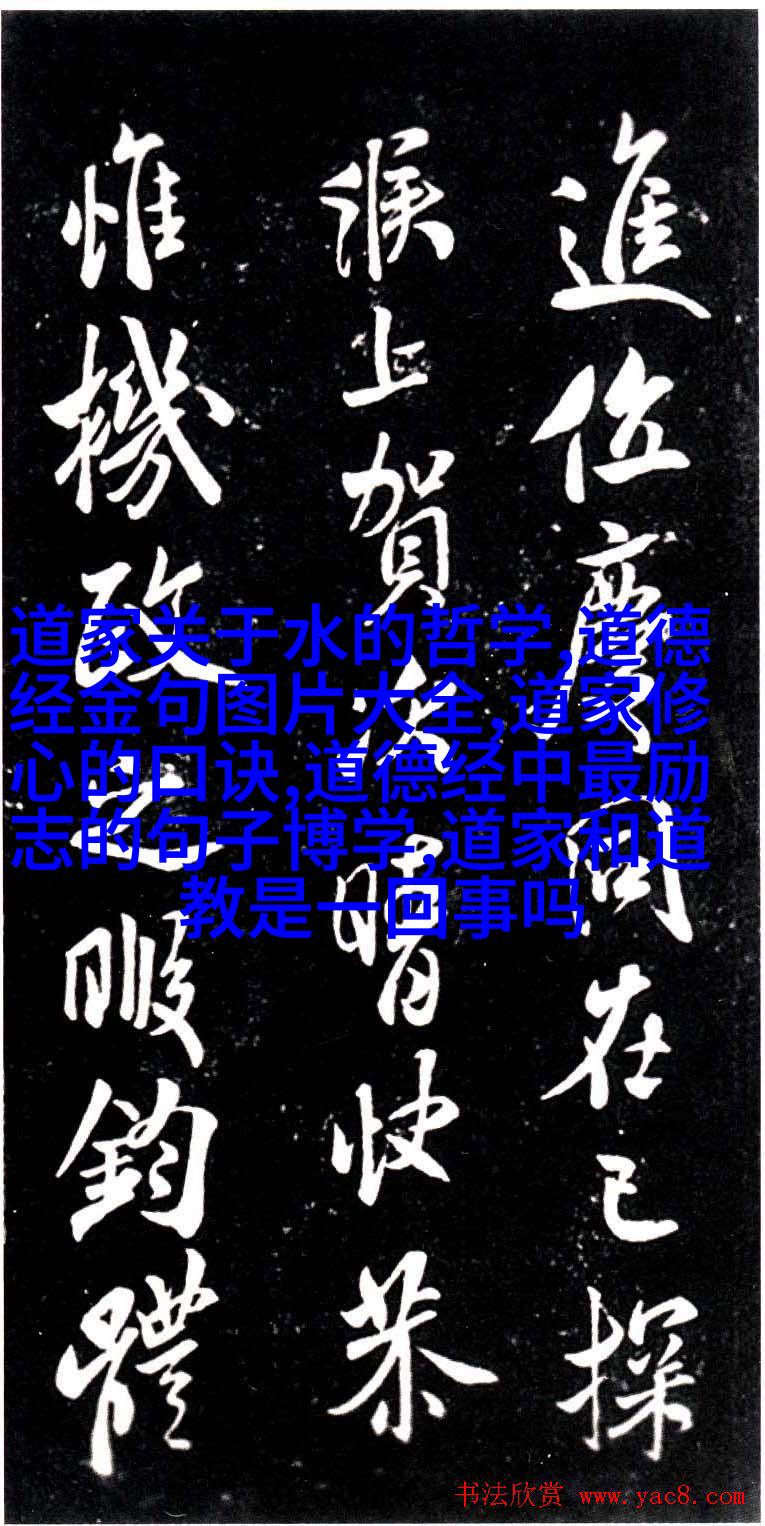 進位慶問在已操
履上賀次晴快恭
惟機政之暇鈞體
道家关于水的哲学,道德
经金句图片大全,道家修
心的口诀,道德经中最励
志的句子博学,道家和道
教是一回事吗
书法欣赏 www.yac8.com